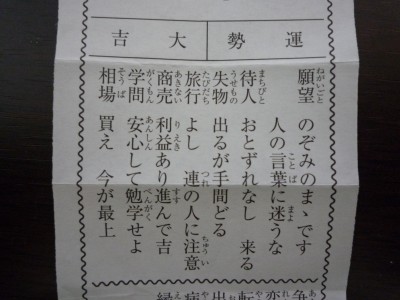 運勢 大吉
願望 のぞみのまゝです
人の言葉に迷うな
待人 おとずれなし 来る
失物 出るが手間どる
旅行 よし 連の人に注意
商売 利益あり進んで吉
学問 安心して勉学せよ
相場 買え 今が最上
争
転
出